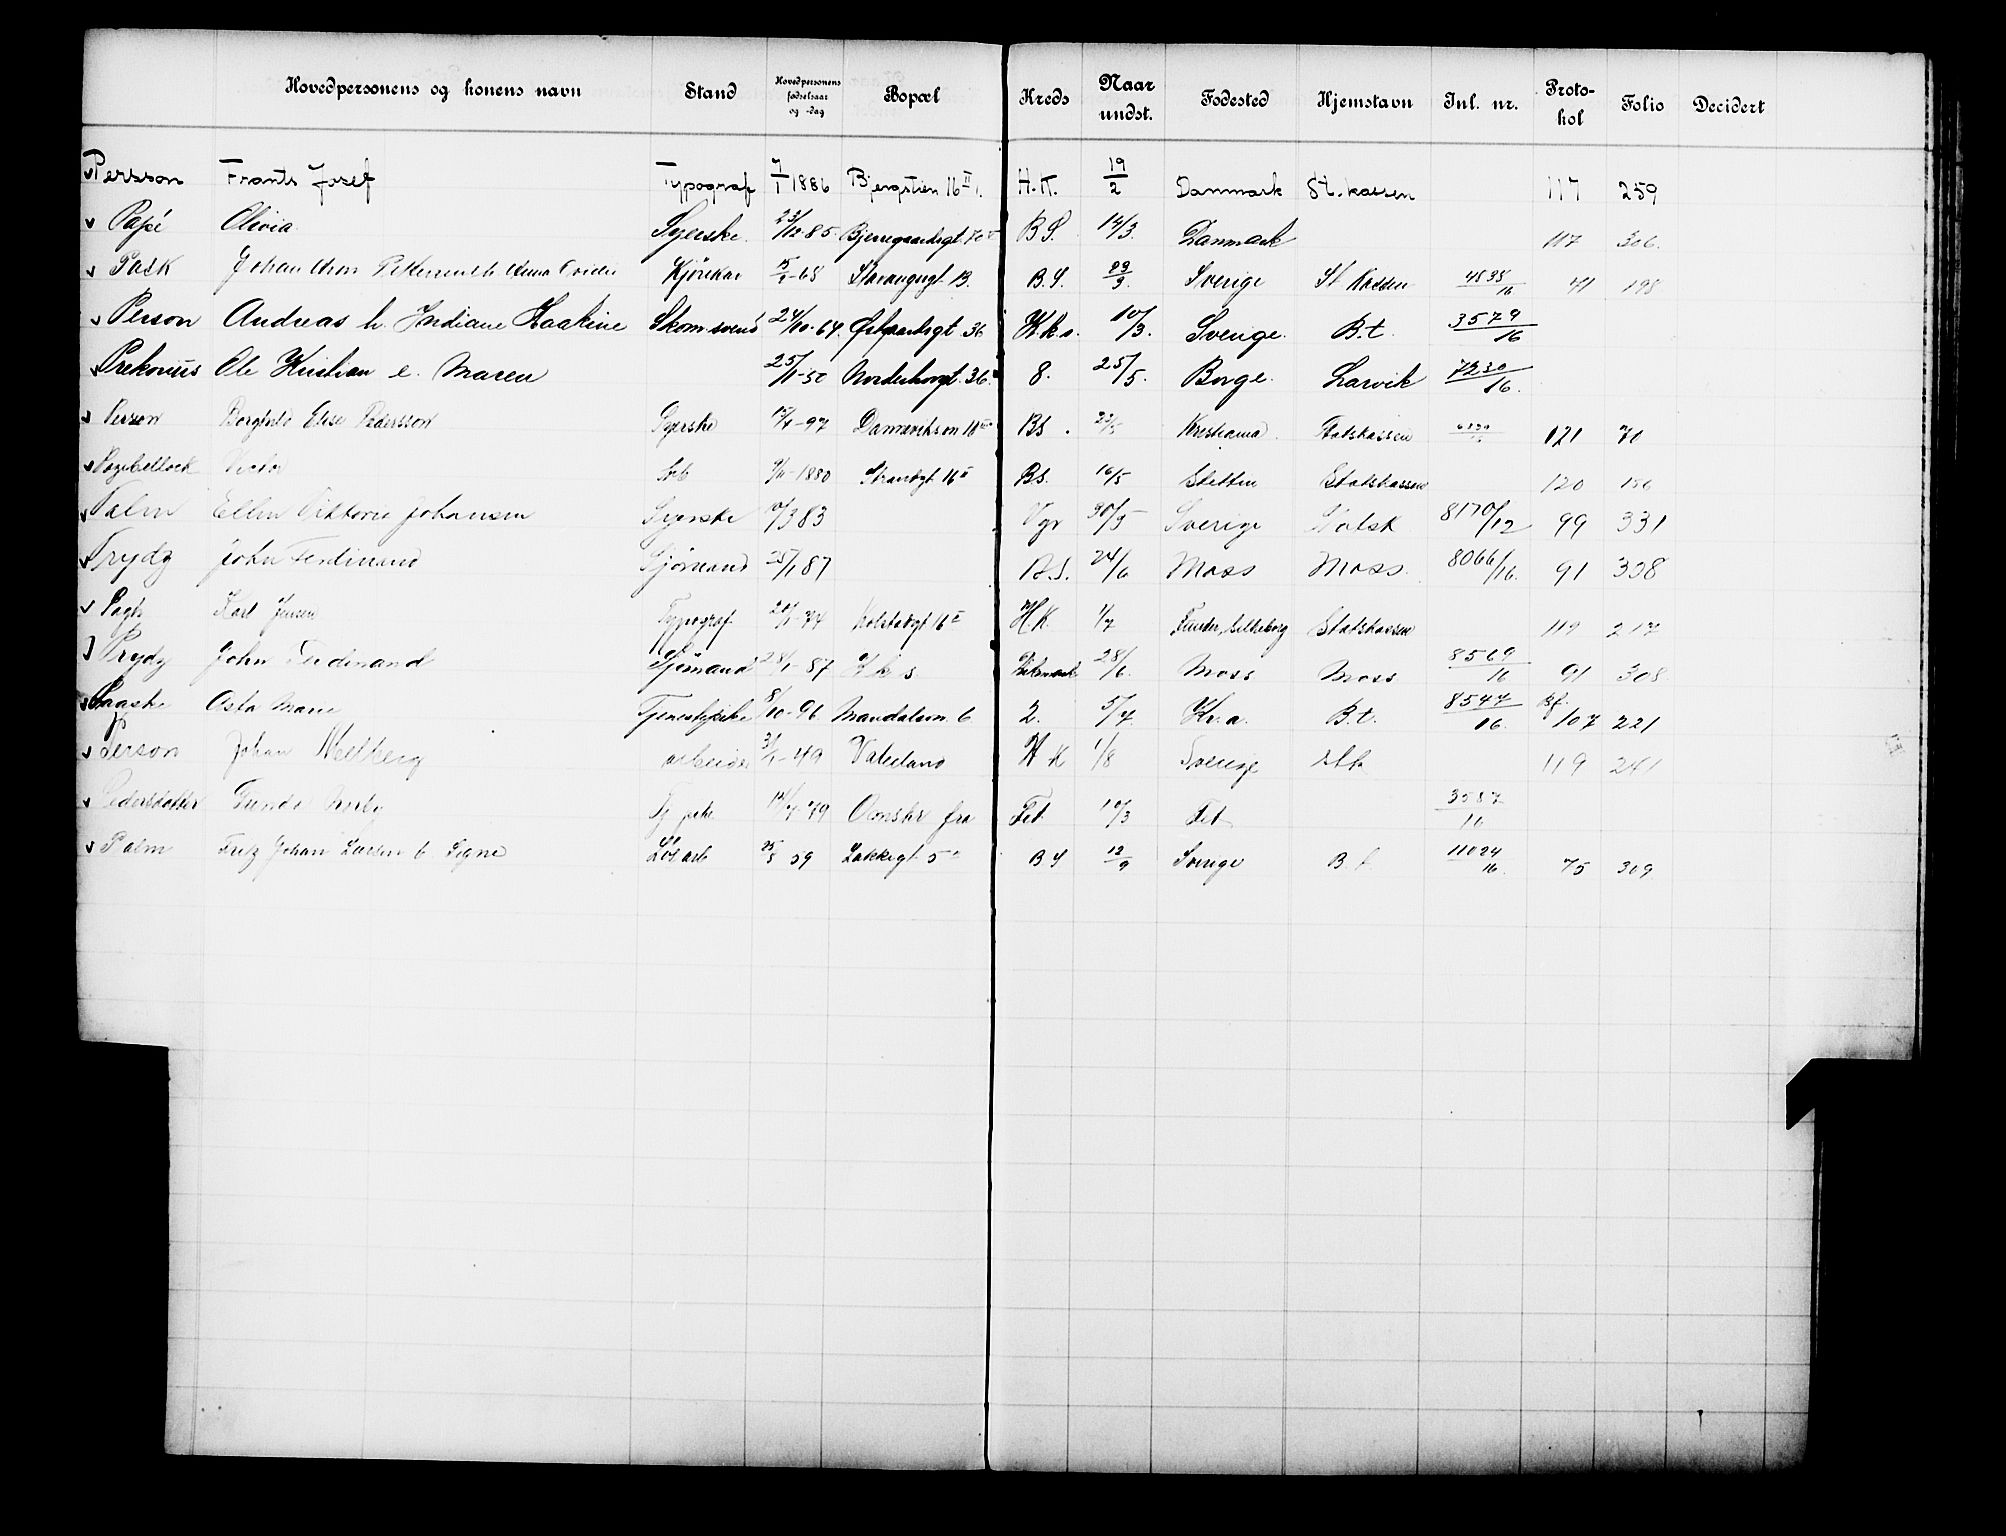 Hovedpersonens og konens navn Stand Hovedpersonens fødselsaar og -dag Bopæl Kreds Naar undst. Fødested Hjemstavn Inl. nr. Proto-kol Folio Decidert
Persson Frants Josef Typograf 7/1 1886 Bjergstien 16 II H.K. 19/2 Danmark St.kassen 117 259
Papé Olivia Syerske 23/12-85 Bjerregaardsgt. 70 B.S. 14/3 Danmark 117 306.
Pask Johan Kjörekar 15/1-68 Stavangergt 13. B.S. 23/3. Sverige St Kassen 4838/16 41 198
Person Andreas h. Jndiane Haakine Skom.svend 24/10-64. 36 K.k.s. 10/3. Sverige. B.t. 3579/16
Prekoniis Ole Kristian e. Maren 25/11-50 Norderhovgt. 36. 8. 25/5. Borge. Larvik 7230/16.
Person Borghild Elise Pedersson Syerske 15/4-97 Dannevikson 18 BS. 22/5 Kristiania Statskassen 121 70
Victor 9/11-1880 Strandgt 16 II BS. 16/5 Stettin Statskassen 120 186
Palm Ellen Viktoria Johansen Syerske 10/3 83 Vgr 30/5 Sverige Statsk 8170/12 99 331
Prydz John Ferdinand Sjömand 25/1 87 B.S. 24/6 Moss Moss. 8066/16. 91 308
Pagh Karl Jensen Typograf 20/1-74 Kolstadgt 16 II H.K. 1/7 Funder, Silkeborg Statskassen 119 217
Prydz John Ferdinand Sjömand 28/1-87 K.k.s. 28/6. Moss Moss 8569/16 91 308.
Paaske Asta Marie Tjenestepike 8/10-96 Mandalsvn. 6 2. 5/7. Kr.a. B.t. 8547/16. Bf. 107 221
Person Johan Wedberg arbeider 3/1-49 Vaterland H K 1/8 Sverige stk 119 241
Pedersdatter Tj. pike 14/7-79 Ömskr fra Fet 10/3 Fet 3587/16
Palm Fritz Johan Larsen h Signe Løsarb 25/5 59 Lakkegt 5 B S 12/9 Sverige B.t. 11024/16. 75 309.